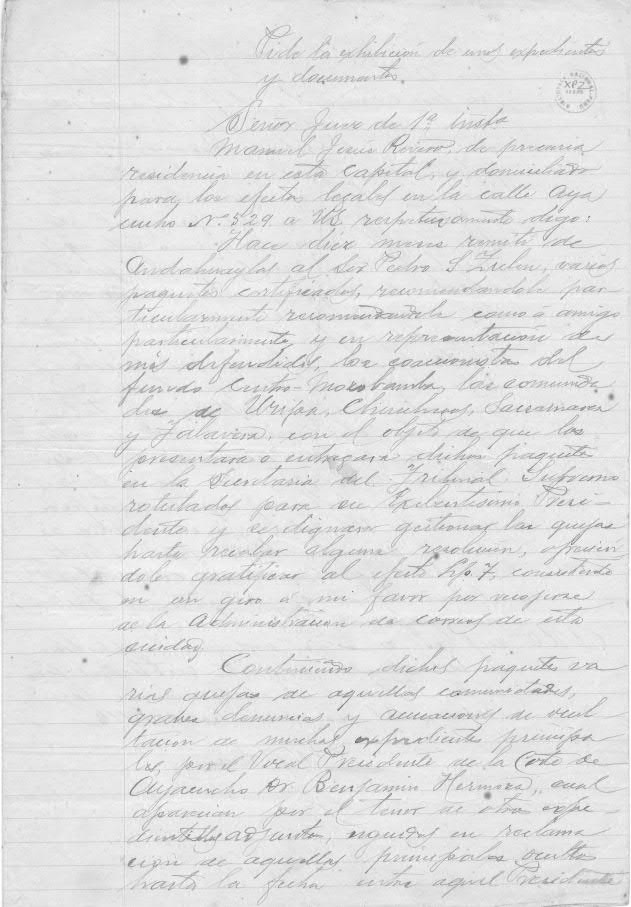 Pide la exhibición de unos expedientes
y documentos.
BIBLIOTECA NACIONAL
XPZ
Señor Juez de 1ª Instª
Manuel Jesús de precaria
residencia en esta Capital, y domiciliado
para los efectos legales en la calle Aya
cucho Nº 529 a US. respetuosamente digo:
Hace diez meses remití de
Andahuaylas al Sor Pedro S. varios
paquetes certificados, recomendandole par-
ticularmente como á amigo
particularmente, y en representación de
mis defendidos, los coaccionistas del
fundo los comunida
des de Uripa, Sacramarca
y Talavera, con el objeto de que los
presentara o entregara dichos paquetes
en la Secretaria del Tribunal Supremo
rotulados para su Excelentisimo Presi-
dente y se dignara gestionar las quejas
hasta recabar alguna resolucion, ofrecien
dole gratificar al efecto Lp. 7, consistente
en un giro á mi favor por
de la Administracion de correos de esta
ciudad
Conteniendo dichos paquetes va
rias quejas de aquellas comunidades,
graves denuncias y acusaciones de ocul
tacion de muchos expedientes principa
les, por el Vocal Presidente de la Corte de
Ayacucho Dr. Benjamin cual
aparecian por el tenor de otros expe
dientes adjuntos, seguidos en reclama
cion de aquellos principales ocultos
hasta la fecha entre aquel Presidente